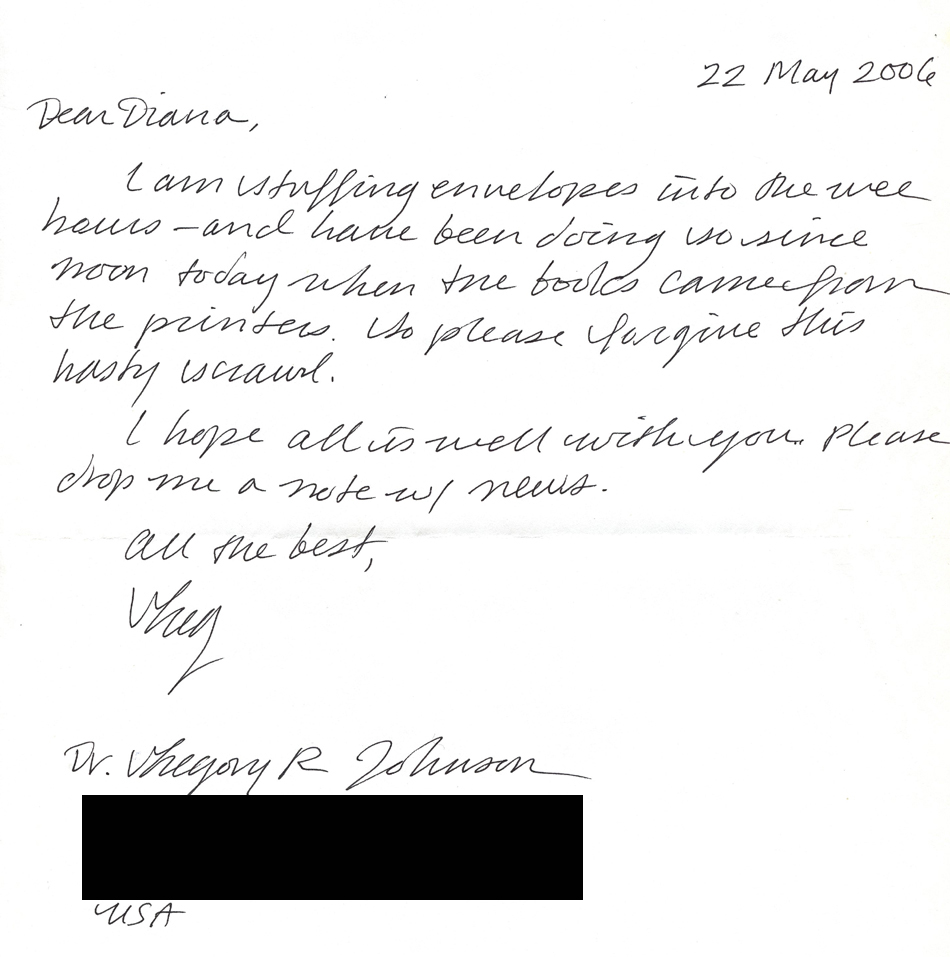 22 May 2006
Dear Diana,
I am stuffing envelopes into the wee
hours – and have been doing so since
noon today when the books came from
the printers. So please forgive this
hasty scrawl.
I hope all is well with you. Please
drop me a note w/ news.
All the best,
Greg
Dr. Gregory R Johnson
USA